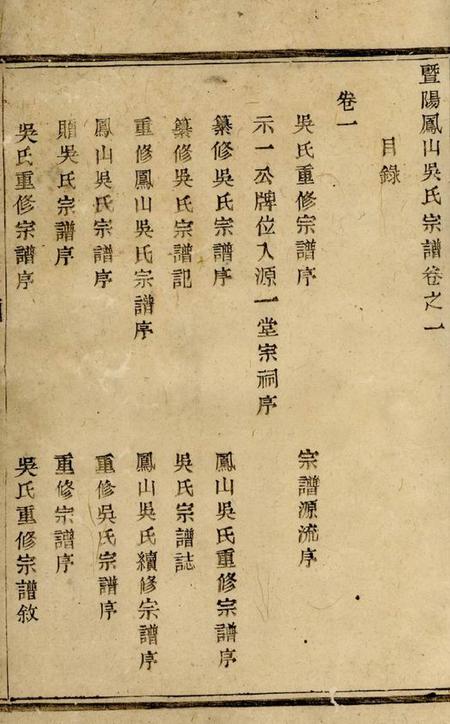 暨陽鳳山吳氏宗譜卷之一
目錄
卷一
吳氏重修宗譜序
宗譜源流序
示一公牌位入源一堂宗祠序
纂修吳氏宗譜序
鳳山吳氏重修宗譜序
纂修吳氏宗譜記
吳氏宗譜誌
重修鳳山吳氏宗譜序
鳳山吳氏續修宗譜序
鳳山吳氏宗譜序
重修吳氏宗譜序
贈吳氏宗譜序
重修宗譜序
吳氏重修宗譜序
吳氏重修宗譜敘